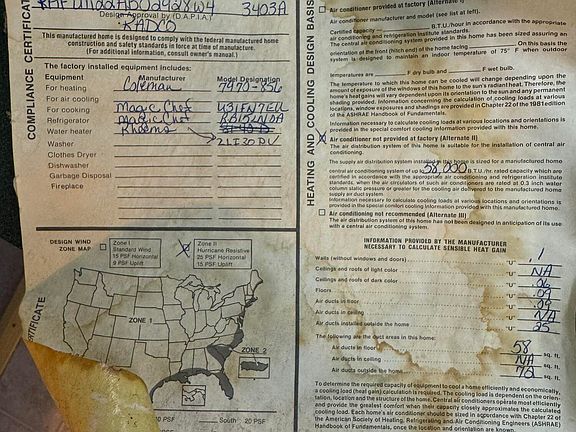 3403A
Design Approval by (D.A.P.I.A.)
RADCO
This manufactured home is designed to comply with the federal manufactured home
construction and safety standards in force at time of manufacture.
(For additional information, consult owner's manual.)
COMPLIANCE CERTIFICATE
The factory installed equipment includes:
Equipment Manufacturer Model Designation
For heating Coleman 7970-856
For air cooling
For cooking Magic Chef
Refrigerator Magic Chef
Water heater Rheems
Washer
Clothes Dryer
Dishwasher
Garbage Disposal
Fireplace
DESIGN WIND
ZONE MAP
Zone I
Standard Wind
15 PSF Horizontal
9 PSF Uplift
X Zone II
Hurricane Resistive
25 PSF Horizontal
15 PSF Uplift
ZONE 1
ZONE 2
PSF South 20 PSF
HEATING AND COOLING DESIGN BASIS
Air conditioner provided at factory (Alternate
Air conditioner manufacturer and model (see list at left).
Certified capacity B.T.U./hour in accordance with the appropriate
air conditioning and refrigeration institute standards.
The central air conditioning system provided in this home has been sized assuming an
orientation of the front (hitch end) of the home facing On this basis the
system is designed to maintain an indoor temperature of 75° F when outdoor
temperatures are F dry bulb and F wet bulb.
The temperature to which this home can be cooled will change depending upon the
amount of exposure of the windows of this home to the sun's radiant heat. Therefore, the
home's heat gains will vary dependent upon its orientation to the sun and any permanent
shading provided. Information concerning the calculation of cooling loads at various
locations, window exposures and shadings are provided in Chapter 22 of the 1981 edition
of the ASHRAE Handbook of Fundamentals.
Information necessary to calculate cooling loads at various locations and orientations is
provided in the special comfort cooling information provided with this home.
X Air conditioner not provided at factory (Alternate II)
The air distribution system of this home is suitable for the installation of central air
conditioning.
The supply air distribution system installed in this home is sized for a manufactured home
central air conditioning system of up to 58,000 B.T.U./hr. rated capacity which are
certified in accordance with the appropriate air conditioning and refrigeration institute
standards, when the air circulators of such air conditioners are rated at 0.3 inch water
column static pressure or greater for the cooling air delivered to the manufactured home
supply air duct system.
Information necessary to calculate cooling loads at various locations and orientations is
provided in the special comfort cooling information provided with this manufactured home.
Air conditioning not recommended (Alternate III)
The air distribution system of this home has not been designed in anticipation of its use
with a central air conditioning system.
INFORMATION PROVIDED BY THE MANUFACTURER
NECESSARY TO CALCULATE SENSIBLE HEAT GAIN
Walls (without windows and doors) "U" .1
Ceilings and roofs of light color "U" NA
Ceilings and roofs of dark color "U" .06
Floors "U" .09
Air ducts in floor "U" .09
Air ducts in ceiling "U" NA
Air ducts installed outside the home "U" .25
The following are the duct areas in this home:
Air ducts in floor 58 sq. ft.
Air ducts in ceiling NA sq. ft.
Air ducts outside the home sq. ft.
To determine the required capacity of equipment to cool a home efficiently and economically,
a cooling load (heat gain) calculation is required. The cooling load is dependent on the orien-
tation, location and the structure of the home. Central air conditioners operate most efficiently
and provide the greatest comfort when their capacity closely approximates the calculated
cooling load. Each home's air conditioner should be sized in accordance with Chapter 22 of
the American Society of Heating, Refrigerating and Air Conditioning Engineers (ASHRAE)
Handbook of Fundamentals, once the location and orientation are known.